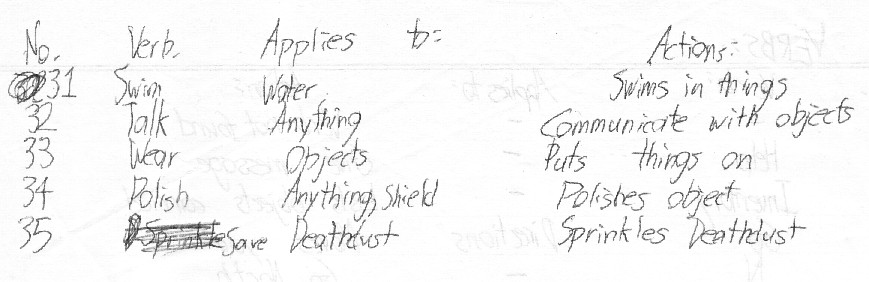 No. Verb. Applies to: Actions:
31 Swim Water Swims in things
32 Talk Anything Communicate with objects
33 Wear Objects Puts things on
34 Polish Anything, Shield Polishes object
35 Sprinkle Save Deathdust Sprinkles Deathdust